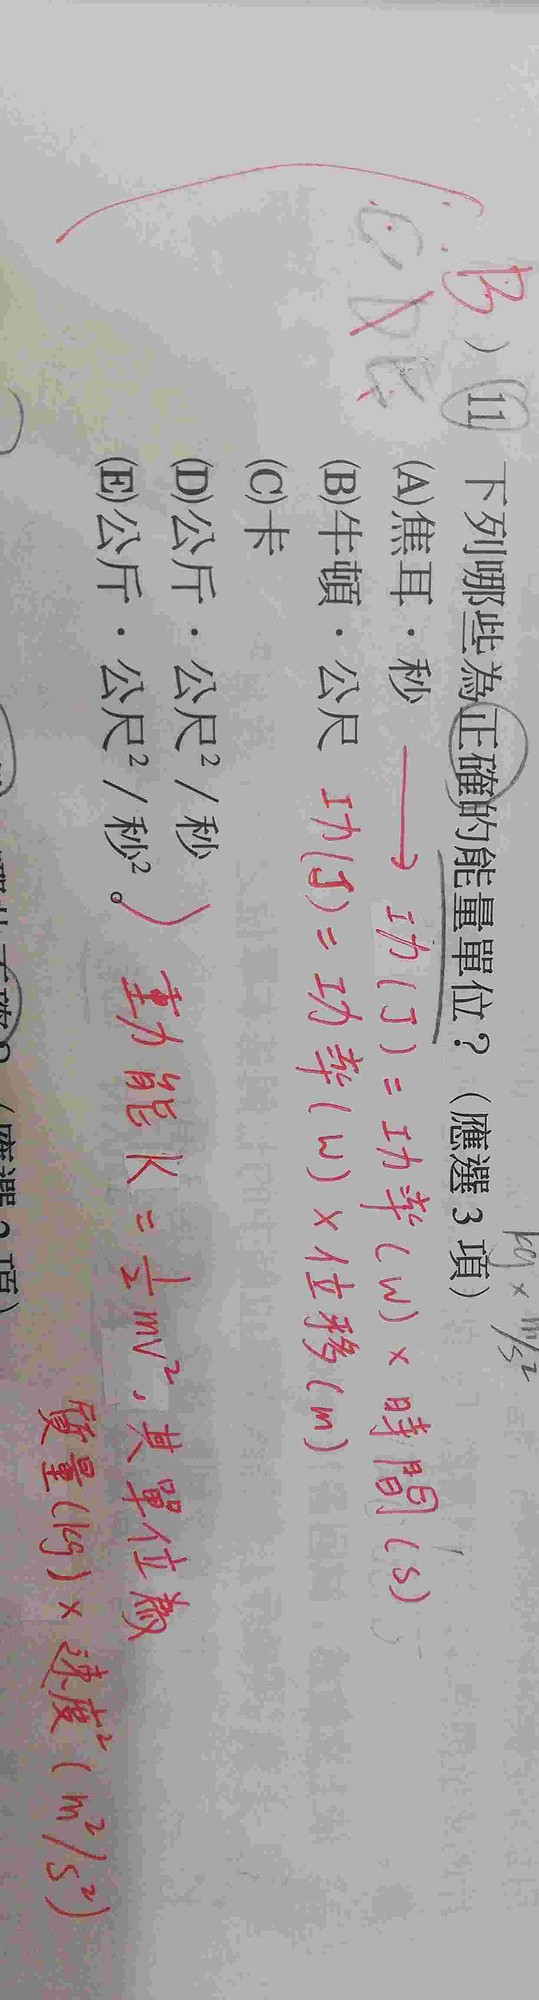 B
CDE
) 11 下列哪些為正確的能量單位？（應選 3 項）
kg × m/s²
(A)焦耳．秒 → 功(J) = 功率(W) × 時間(s)
(B)牛頓．公尺 功(J) = 功率(W) × 位移(m)
(C)卡
(D)公斤．公尺²/秒
(E)公斤．公尺²/秒²。
動能 K = ½mv²，其單位為
質量(kg) × 速度²(m²/s²)